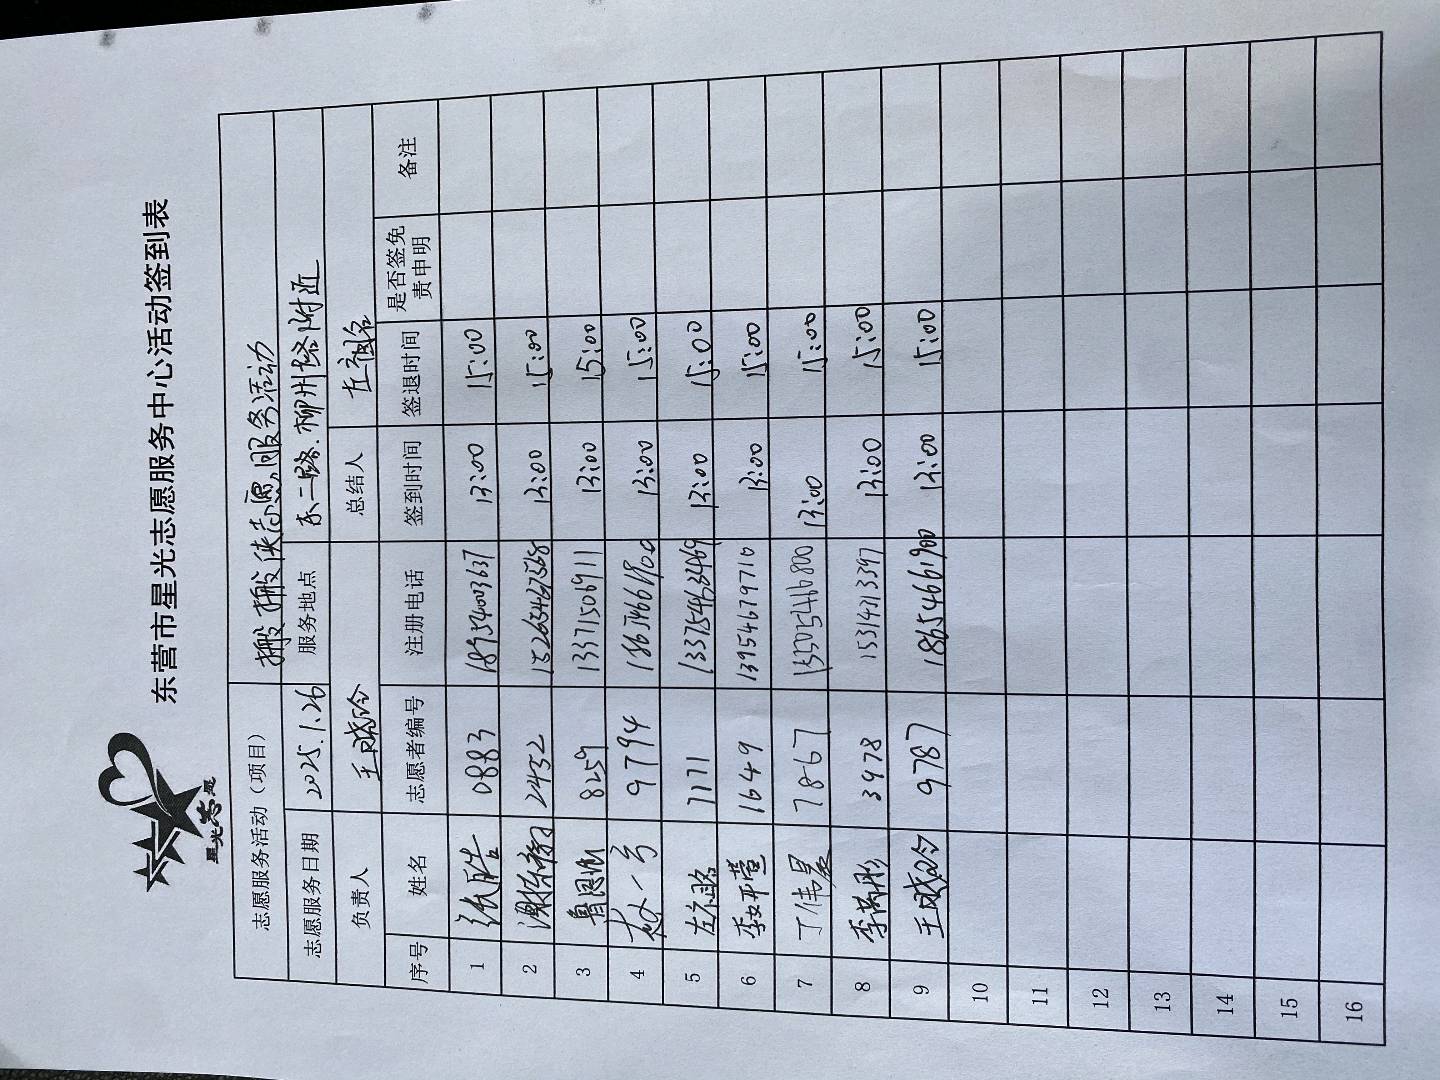 星光志愿
东营市星光志愿服务中心活动签到表
志愿服务活动（项目） 搬搬侠志愿服务活动
志愿服务日期 2025.1.26 服务地点 东二路.柳州路附近
负责人 总结人
序号 姓名 志愿者编号 注册电话 签到时间 签退时间 是否签免责申明 备注
1 0883 18954003637 13:00 15:00
2 2432 13:00 15:00
3 8259 13371506911 13:00 15:00
4 赵一兮 9794 13:00 15:00
5 7171 13375463469 13:00 15:00
6 1649 13954679710 13:00 15:00
7 丁伟晏 7867 13305466800 13:00 15:00
8 李芮彤 3978 13:00 15:00
9 9787 18654661900 13:00 15:00
10
11
12
13
14
15
16